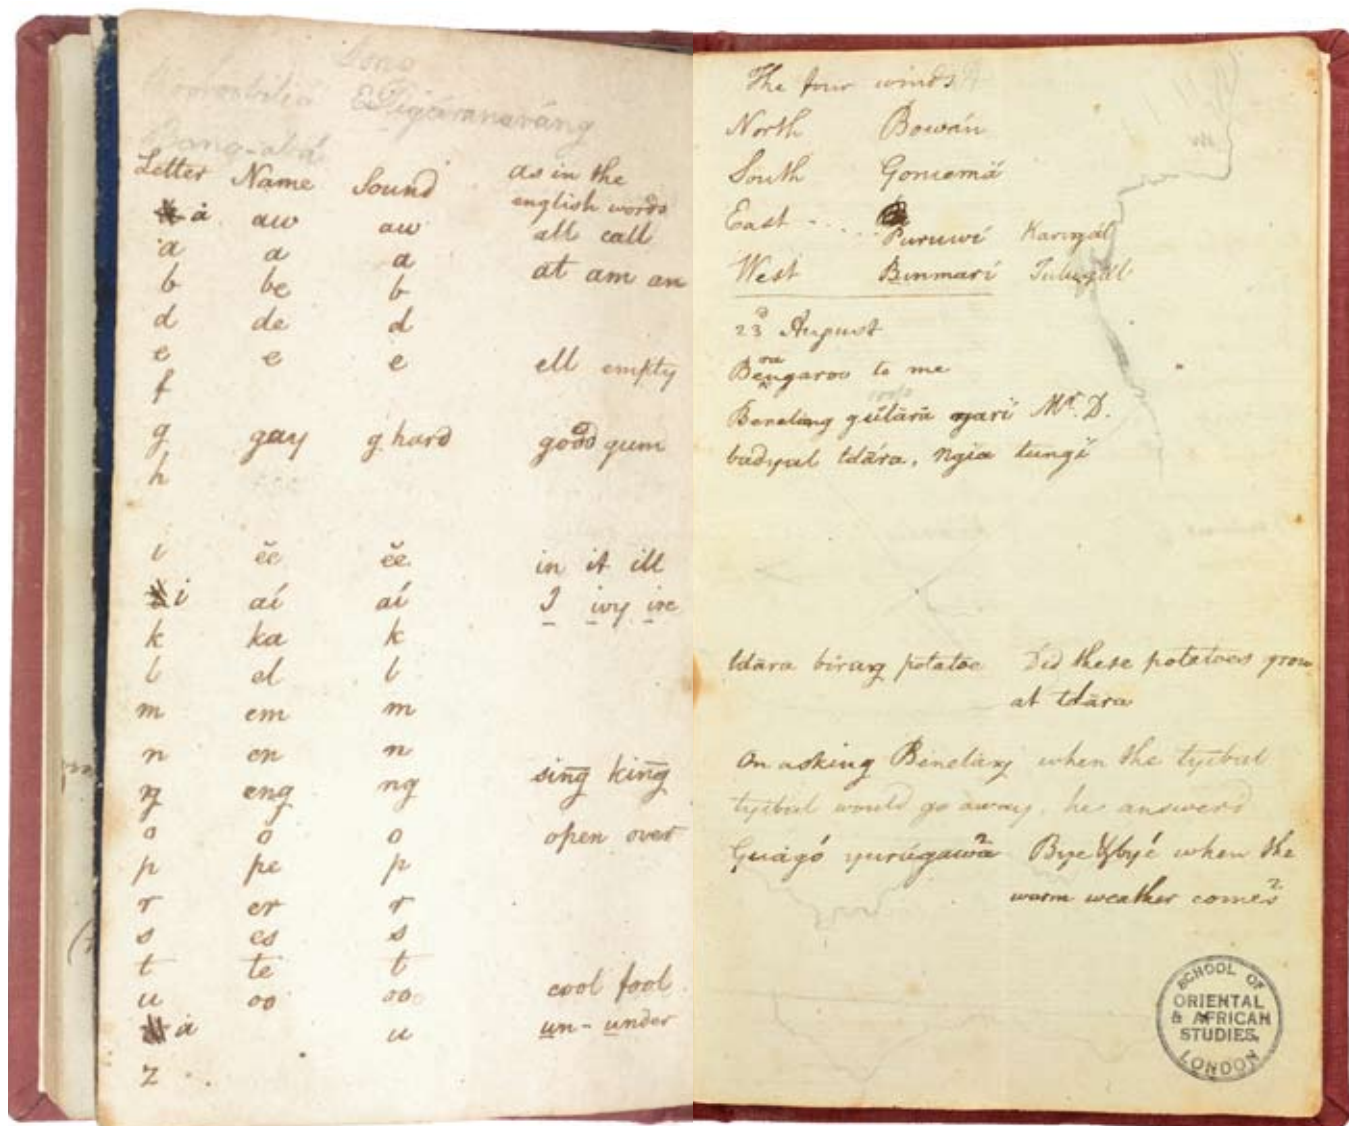 Song
Digarranarang
Letter Name Sound as in the
english words
ȧ aw aw all call
a a a at am an
b be b
d de d
e e e ell empty
f
g gay g hard good gum
h
i ĕe ĕe in it ill
i aí aí I ivy ire
k ka k
l el l
m em m
n en n
ŋ eng ng sing king
o o o open over
p pe p
r er r
s es s
t te t
u oo oo cool fool
ȧ u un - under
z
The four winds
North Bowán
South Goniemá
East Puruwí Kariŋál
West Binmarí Tuluŋál
23d August
Benŋaroo to me
ra
Beneláng gülárá ŋarí Mr. D.
badyal tdára, Ngia tungí
tdára biraŋ potatoe Did these potatoes grow
at tdára
On asking Beneláŋ when the tyibul
tyibul would go away, he answerd
Guágó yurúgawá? Bye & byé when the
warm weather comes?
SCHOOL OF
ORIENTAL
& AFRICAN
STUDIES.
LONDON